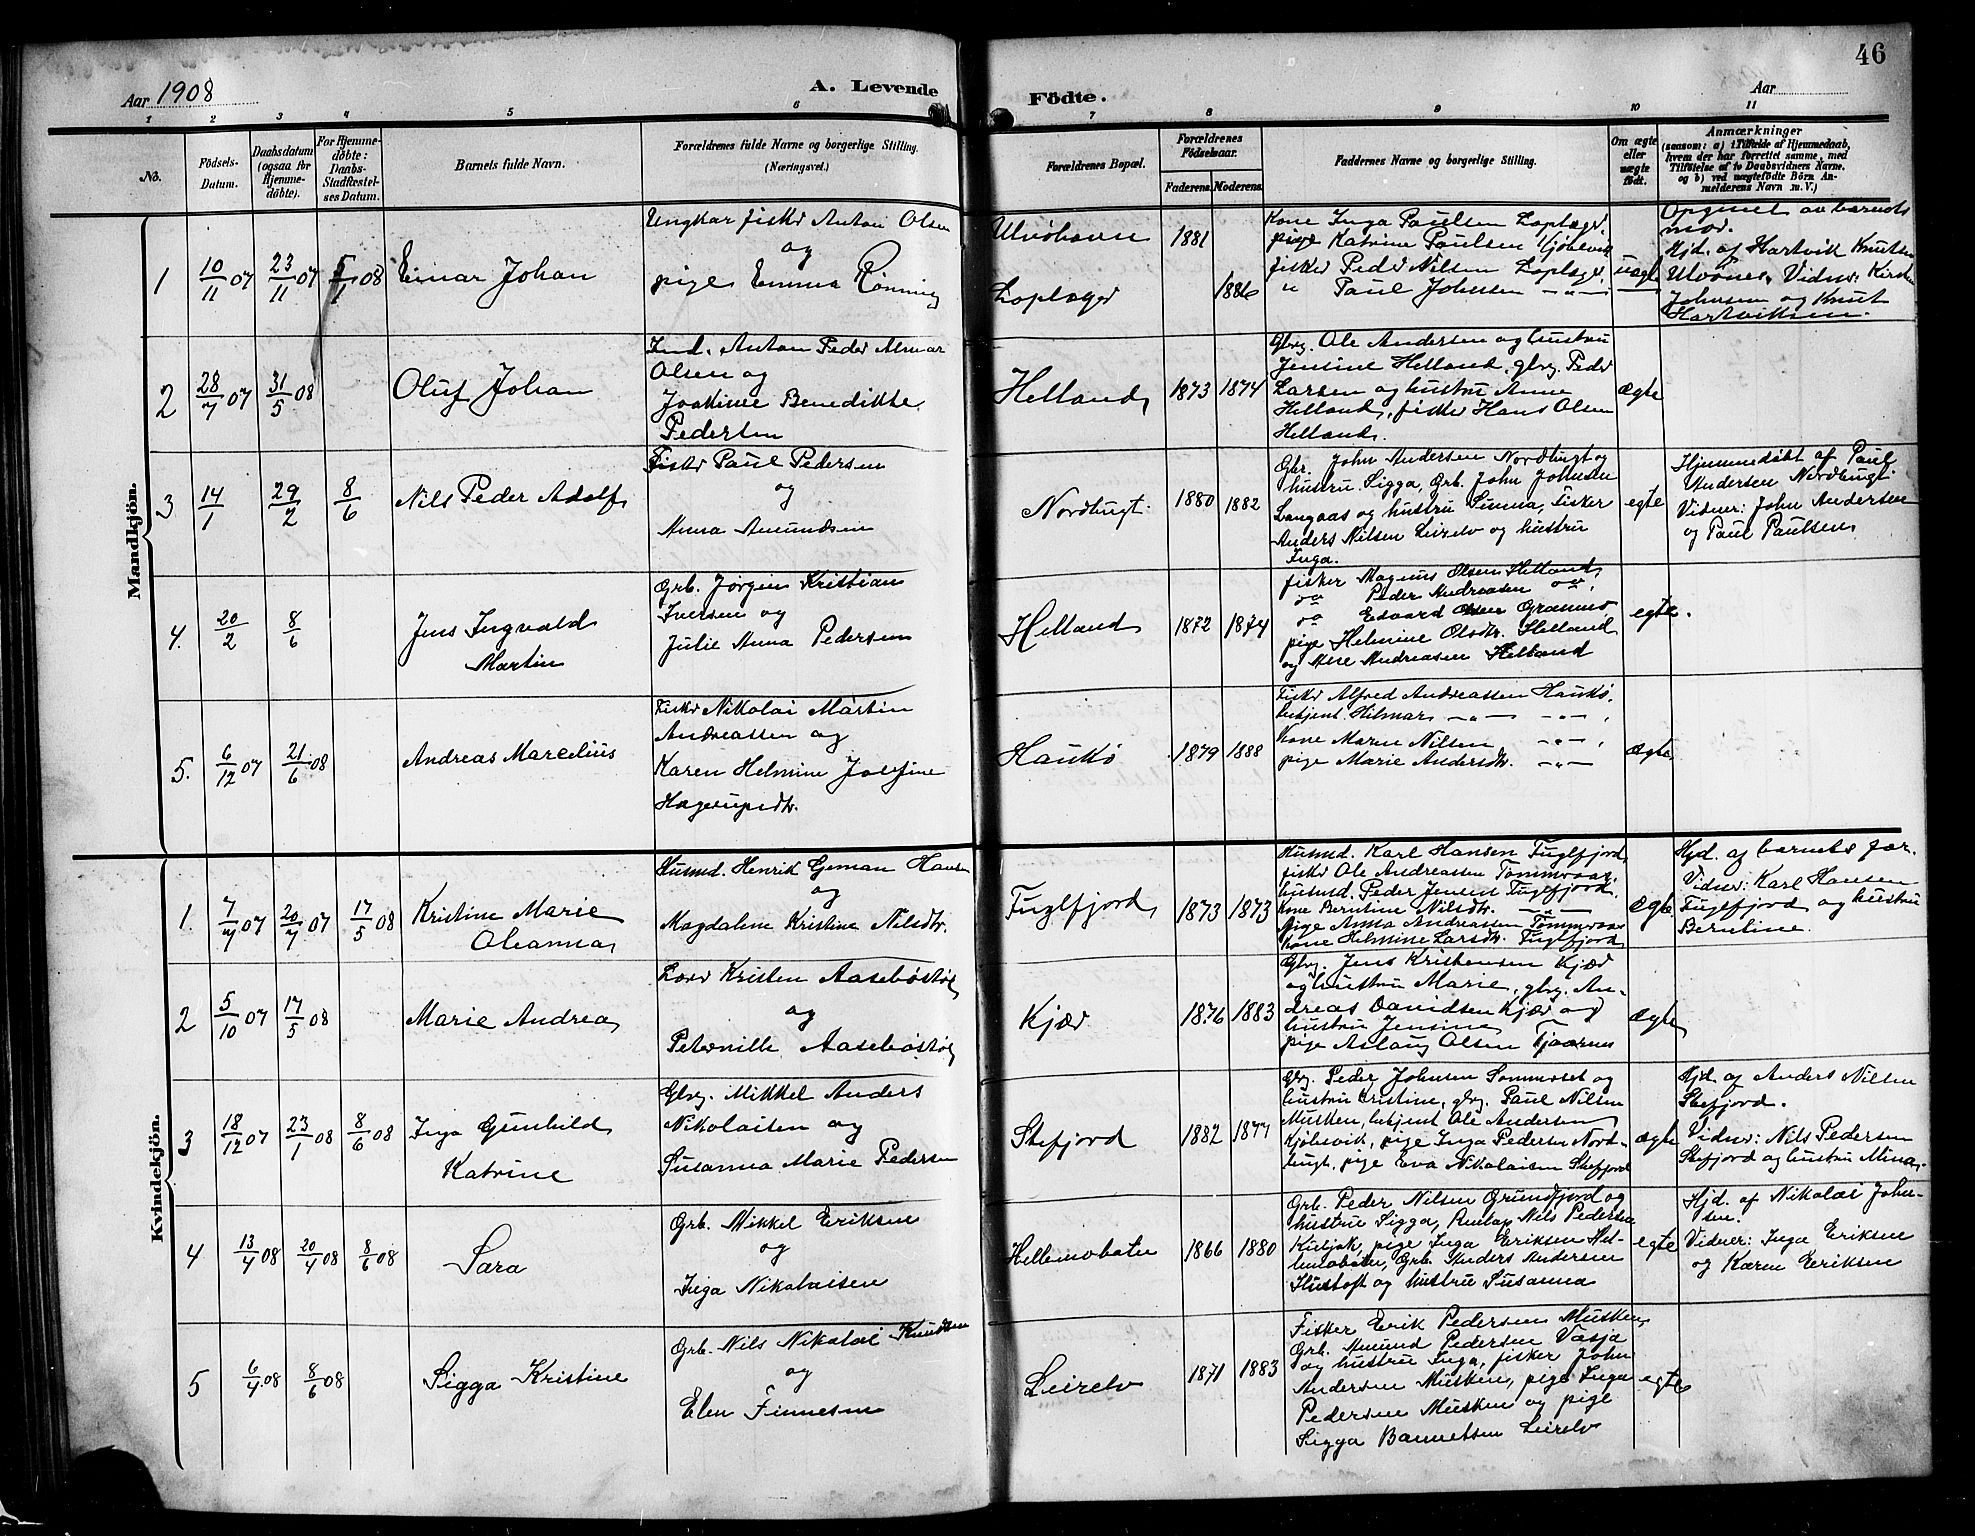 46
Aar 1908
A. Levende
Födte.
Aar
1 2 3 4 5 6 7 8 9 10 11
No.
Födsels-
Datum.
Daabsdatum
(ogsaa for
Hjemme-
döbte).
For Hjemme-
döbte:
Daabs-
Stadfæstel-
ses Datum.
Barnets fulde Navn.
Forældrenes fulde Navne og borgerlige Stilling.
(Næringsvei.)
Forældrenes Bopæl.
Forældrenes
Födselsaar.
Faderens. Moderens.
Faddernes Navne og borgerlige Stilling.
Om ægte
eller
uægte
födt.
Anmærkninger
(saasom: a) i Tilfælde af Hjemmedaab,
hvem der har forrettet samme, med
Tilföielse af to Daabsvidners Navne.
og b) ved uægtefödte Börn An-
melderens Navn m. V.)
Mandkjön.
1
10/11 07
23/11 07
5/1 08
Einar Johan
Ungkar fisker Anton Olsen
og
pige Emma Rönning
Ulvöhavn
Loplager
1881
1886
Kone Inga Paulsen Loplager.
pige Katrine Paulsen Kjöbsvik
fisker Peder Nilsen Loplager.
" Paul Johnsen — " —
uægte
Opgivet av barnets
mor.
Hjd. af Hartvik Knutsen
Ulvönes. Vidner: Kirsten
Johnsen og Knut
Hartviksen.
2
28/7 07
31/5 08
Oluf Johan
Ind. Anton Peder Almar
Olsen og
Joakine Benedikte
Pedersen
Helland
1873 1874
Gbrg. Ole Andersen og hustru
Jensine Helland, gbrg. Peder
Larsen og hustru Anne
Helland, fisker Hans Olsen
Helland.
ægte
3
14/1
29/2
8/6
Nils Peder Adolf
Fisker Paul Pedersen
og
Anna Amundsen
Nordbugt.
1880 1882
Gbr. John Andersen Nordbugt og
hustru Sigga, Grb. John Johnsen
Langaas og hustru Simma, Fisker
Anders Nilsen Leirelv og hustru
Inga.
egte
Hjemmedöbt af Paul
Andersen Nordbugt.
Vidner: John Andersen
og Paul Paulsen
4.
20/2
8/6
Jens Ingvald
Martin
Grb. Jörgen Kristian
Iversen og
Julie Anna Pedersen
Helland
1872 1874
fisker Magnus Olsen Helland,
do Peder Andreasen do,
do Edvard Olsen Grannes,
pige Helmine Olsdtr. Helland
og Ane Andreasen Helland
egte.
5.
6/12 07
21/6 08
Andreas Marcelius
Fisker Nikolai Martin
Andreassen og
Karen Helmine Josefine
Hagerupsdtr.
Haukö
1879 1888
Fisker Alfred Andreassen Haukö.
betjent Hilmar — " — — " — .
Kone Maren Nilsen — " — .
pige Marie Andersdtr. — " —
ægte
Kvindekjön.
1.
7/7 07
20/7 07
17/5 08
Kristine Marie
Oleanna
Husmd. Henrik German Hansen
og
Magdalene Kristine Nilsdtr.
Fuglfjord
1873 1873
Husmd. Karl Hansen Fuglfjord,
fisker Ole Andreassen Tömmeraas,
husmd. Peder Jensen Fuglfjord.
Kone Berntine Nilsdtr. — " —
pige Anna Andreassen Tömmeraas
kone Helmine Larsdtr. Fuglfjord
ægte
Hjd. af barnets far.
Vidner: Karl Hansen
Fuglfjord og hustru
Berntine.
2
5/10 07
17/5 08
Marie Andrea
Lærer Kristen Aaseböstöl
og
Peternille Aaseböstöl
Kjær
1876 1883
Gbrg. Jens Kristensen Kjær
og hustru Marie, gbrg. An-
dreas Davidsen Kjær og
hustru Jensine
pige Aslaug Olsen Tjaarnes
ægte
3
18/12 07
23/1 08
8/6 08
Inga Gunhild
Katrine
Gbrg. Mikkel Anders
Nikolaisen og
Susanna Marie Pedersen
Stefjord
1882 1877
Gbrg. Peder Johnsen Sommerset og
hustru Kristine, gbrg. Paul Nilsen
Musken, betjent Ole Andersen
Kjöbsvik, pige Inga Pedersen Nord-
bugt, pige Eva Nikolaisen Stefjord
ægte
Hjd. af Anders Nilsen
Stefjord.
Vidner: Nils Pedersen
Stefjord og hustru Mina.
4
13/4 08
20/4 08
8/6 08
Sara
Grb. Mikkel Eriksen
og
Inga Nikolaisen
Hellemobotn
1866 1880
Grb. Peder Nilsen Grundfjord og
hustru Sigga, Nils Pedersen
pige Inga Eriksen Hel-
lemobotn, Grb. Anders Andersen
og hustru Susanna
egte
Hjd. af Nikolai John-
sen.
Vidner: Inga Eriksen
og Karen Eriksen
5
6/4 08
8/6 08
Sigga Kristine
Grb. Nils Nikolai Knudsen
og
Elen Finnesen
Leirelv
1871 1883
Fisker Erik Pedersen Musken,
Grb. Amund Pedersen Vasja
og hustru Inga, fisker John
Andersen Musken, pige Inga
Pedersen Musken og pige
Sigga Leirelv
egte